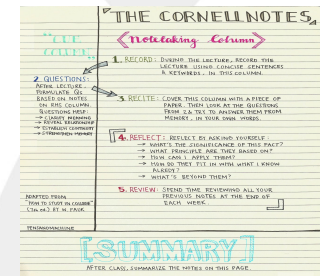 "THE CORNELL NOTES"
"CUE COLUMN"
Notetaking Column
1. RECORD: DURING THE LECTURE, RECORD THE
LECTURE USING CONCISE SENTENCES
& KEYWORDS, IN THIS COLUMN.
2. QUESTIONS:
AFTER LECTURE,
FORMULATE QS
BASED ON NOTES
ON RHS COLUMN.
QUESTIONS HELP:
→ CLARIFY MEANING
→ REVEAL RELATIONSHIP
→ ESTABLISH CONTINUITY
→ STRENGTHEN MEMORY
3. RECITE: COVER THIS COLUMN WITH A PIECE OF
PAPER. THEN LOOK AT THE QUESTIONS
FROM 2 & TRY TO ANSWER THEM FROM
MEMORY, IN YOUR OWN WORDS.
4. REFLECT: REFLECT BY ASKING YOURSELF:
→ WHAT'S THE SIGNIFICANCE OF THIS FACT?
→ WHAT PRINCIPLE ARE THEY BASED ON?
→ HOW CAN I APPLY THEM?
→ HOW DO THEY FIT IN WITH WHAT I KNOW
ALREADY?
→ WHAT'S BEYOND THEM?
5. REVIEW: SPEND TIME REVIEWING ALL YOUR
PREVIOUS NOTES AT THE END OF
EACH WEEK.
ADAPTED FROM
"HOW TO STUDY IN COLLEGE"
BY W. PAUK
PENSANDMACHINE
[SUMMARY]
AFTER CLASS, SUMMARIZE THE NOTES ON THIS PAGE.